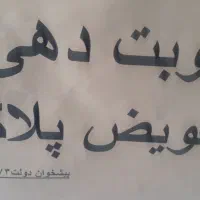 وبت دهی
ویض پلا
پیشخوان دولت ۷۳/